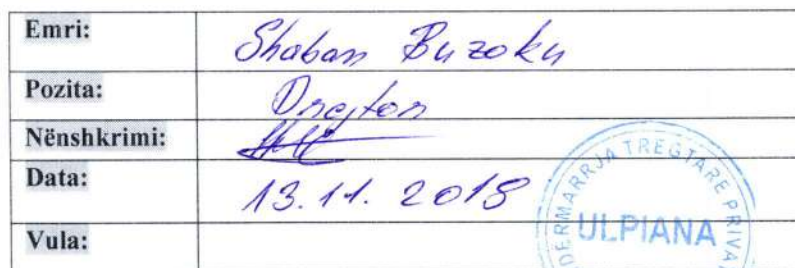 Emri: Shaban Buzoku
Pozita: Drejtor
Nënshkrimi:
Data: 13.11.2018
Vula:
DERMARRJA TREGTARE PRIVA
ULPIANA